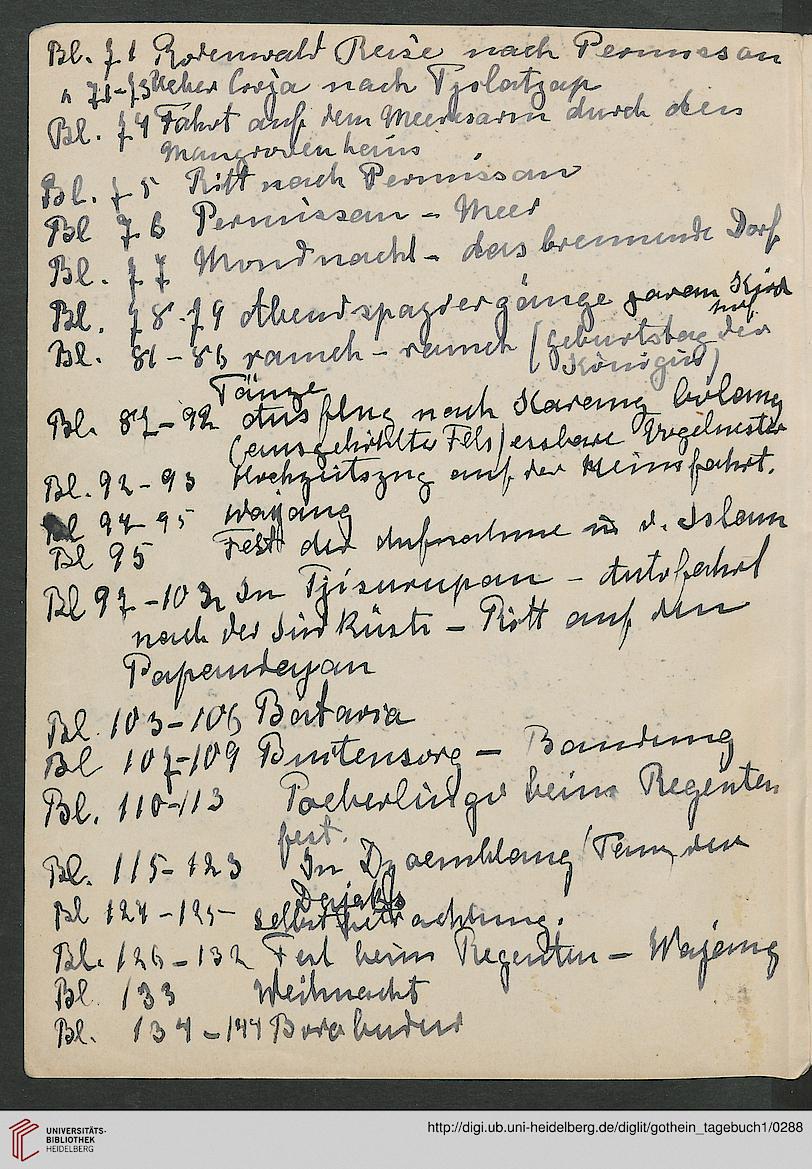 Bl. 71 Rodenwald Reise nach Permissan
" 71-73 Ueber Croja nach Tjilatzap
Bl. 74 Fahrt auf dem Meeresarm durch den
Mangrovenhain
Bl. 75 Ritt nach Permissan
Bl 76 Permissan - Meer
Bl. 77 Mondnacht - das brennende Dorf
Bl. 78-79 Abendspaziergänge
Bl. 81-86 rameh - rameh (Geburtstag der
Königin)
Tänze
Bl. 87-92 Ausflug nach Karang bolang
(ausgehöhlter Fels) essbare Vogelnester
Bl. 92-93 Hochzeitszug auf der Heimfahrt.
Bl 94-95 Wajang
Bl 95 Fest der Aufnahme in d. Islam
Bl 97-102 In Tjisurupan - Autofahrt
nach der Südküste - Ritt auf den
Papandayan
Bl. 103-106 Batavia
Bl 107-109 Buitensorg - Bandung
Bl. 110-113 beim Regenten
fest.
Bl. 115-123 In Tanz der
Bl 124-125 Selbstbetrachtung.
Bl. 126-132 Fest beim Regenten - Wajang
Bl. 133 Weihnacht
Bl. 134-144 Borobudur
UNIVERSITÄTS-
BIBLIOTHEK
HEIDELBERG
http://digi.ub.uni-heidelberg.de/diglit/gothein_tagebuch1/0288